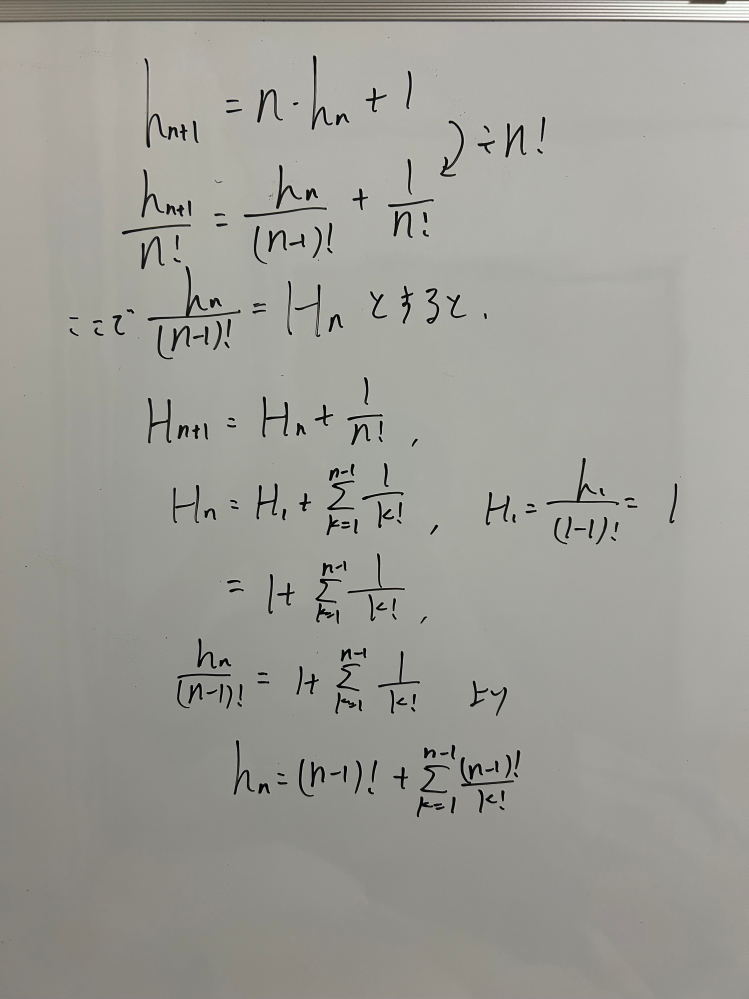 h_{n+1} = n·h_n + 1
÷n!
\frac{h_{n+1}}{n!} = \frac{h_n}{(n-1)!} + \frac{1}{n!}
ここで \frac{h_n}{(n-1)!} = H_n とすると.
H_{n+1} = H_n + \frac{1}{n!},
H_n = H_1 + \sum_{k=1}^{n-1} \frac{1}{k!}, H_1 = \frac{h_1}{(1-1)!} = 1
= 1 + \sum_{k=1}^{n-1} \frac{1}{k!},
\frac{h_n}{(n-1)!} = 1 + \sum_{k=1}^{n-1} \frac{1}{k!} より
h_n = (n-1)! + \sum_{k=1}^{n-1} \frac{(n-1)!}{k!}